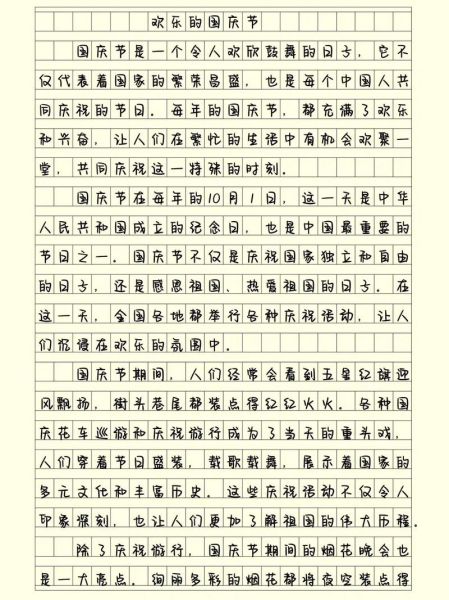 欢乐的国庆节
国庆节是一个令人欢欣鼓舞的日子，它不
仅代表着国家的繁荣昌盛，也是每个中国人共
同庆祝的节日．每年的国庆节，都充满了欢乐
和兴奋，让人们在繁忙的生活中有机会欢聚一
堂，共同庆祝这一特殊的时刻．
国庆节在每年的10月1日，这一天是中华
人民共和国成立的纪念日，也是中国最重要的
节日之一．国庆节不仅是庆祝国家独立和自由
的日子，还是感恩祖国、热爱祖国的日子．在
这一天，全国各地都举行各种庆祝活动，让人
们沉浸在欢乐的氛围中．
国庆节期间，人们经常会看到五星红旗迎
风飘扬，街头巷尾都装点得红红火火．各种国
庆花车巡游和庆祝游行成为了当天的重头戏，
人们穿着节日盛装，载歌载舞，展示着国家的
多元文化和丰富历史．这些庆祝活动不仅令人
印象深刻，也让人们更加了解祖国的伟大历程．
除了庆祝游行，国庆节期间的烟花晚会也
是一大亮点．绚丽多彩的烟花都将夜空装点得